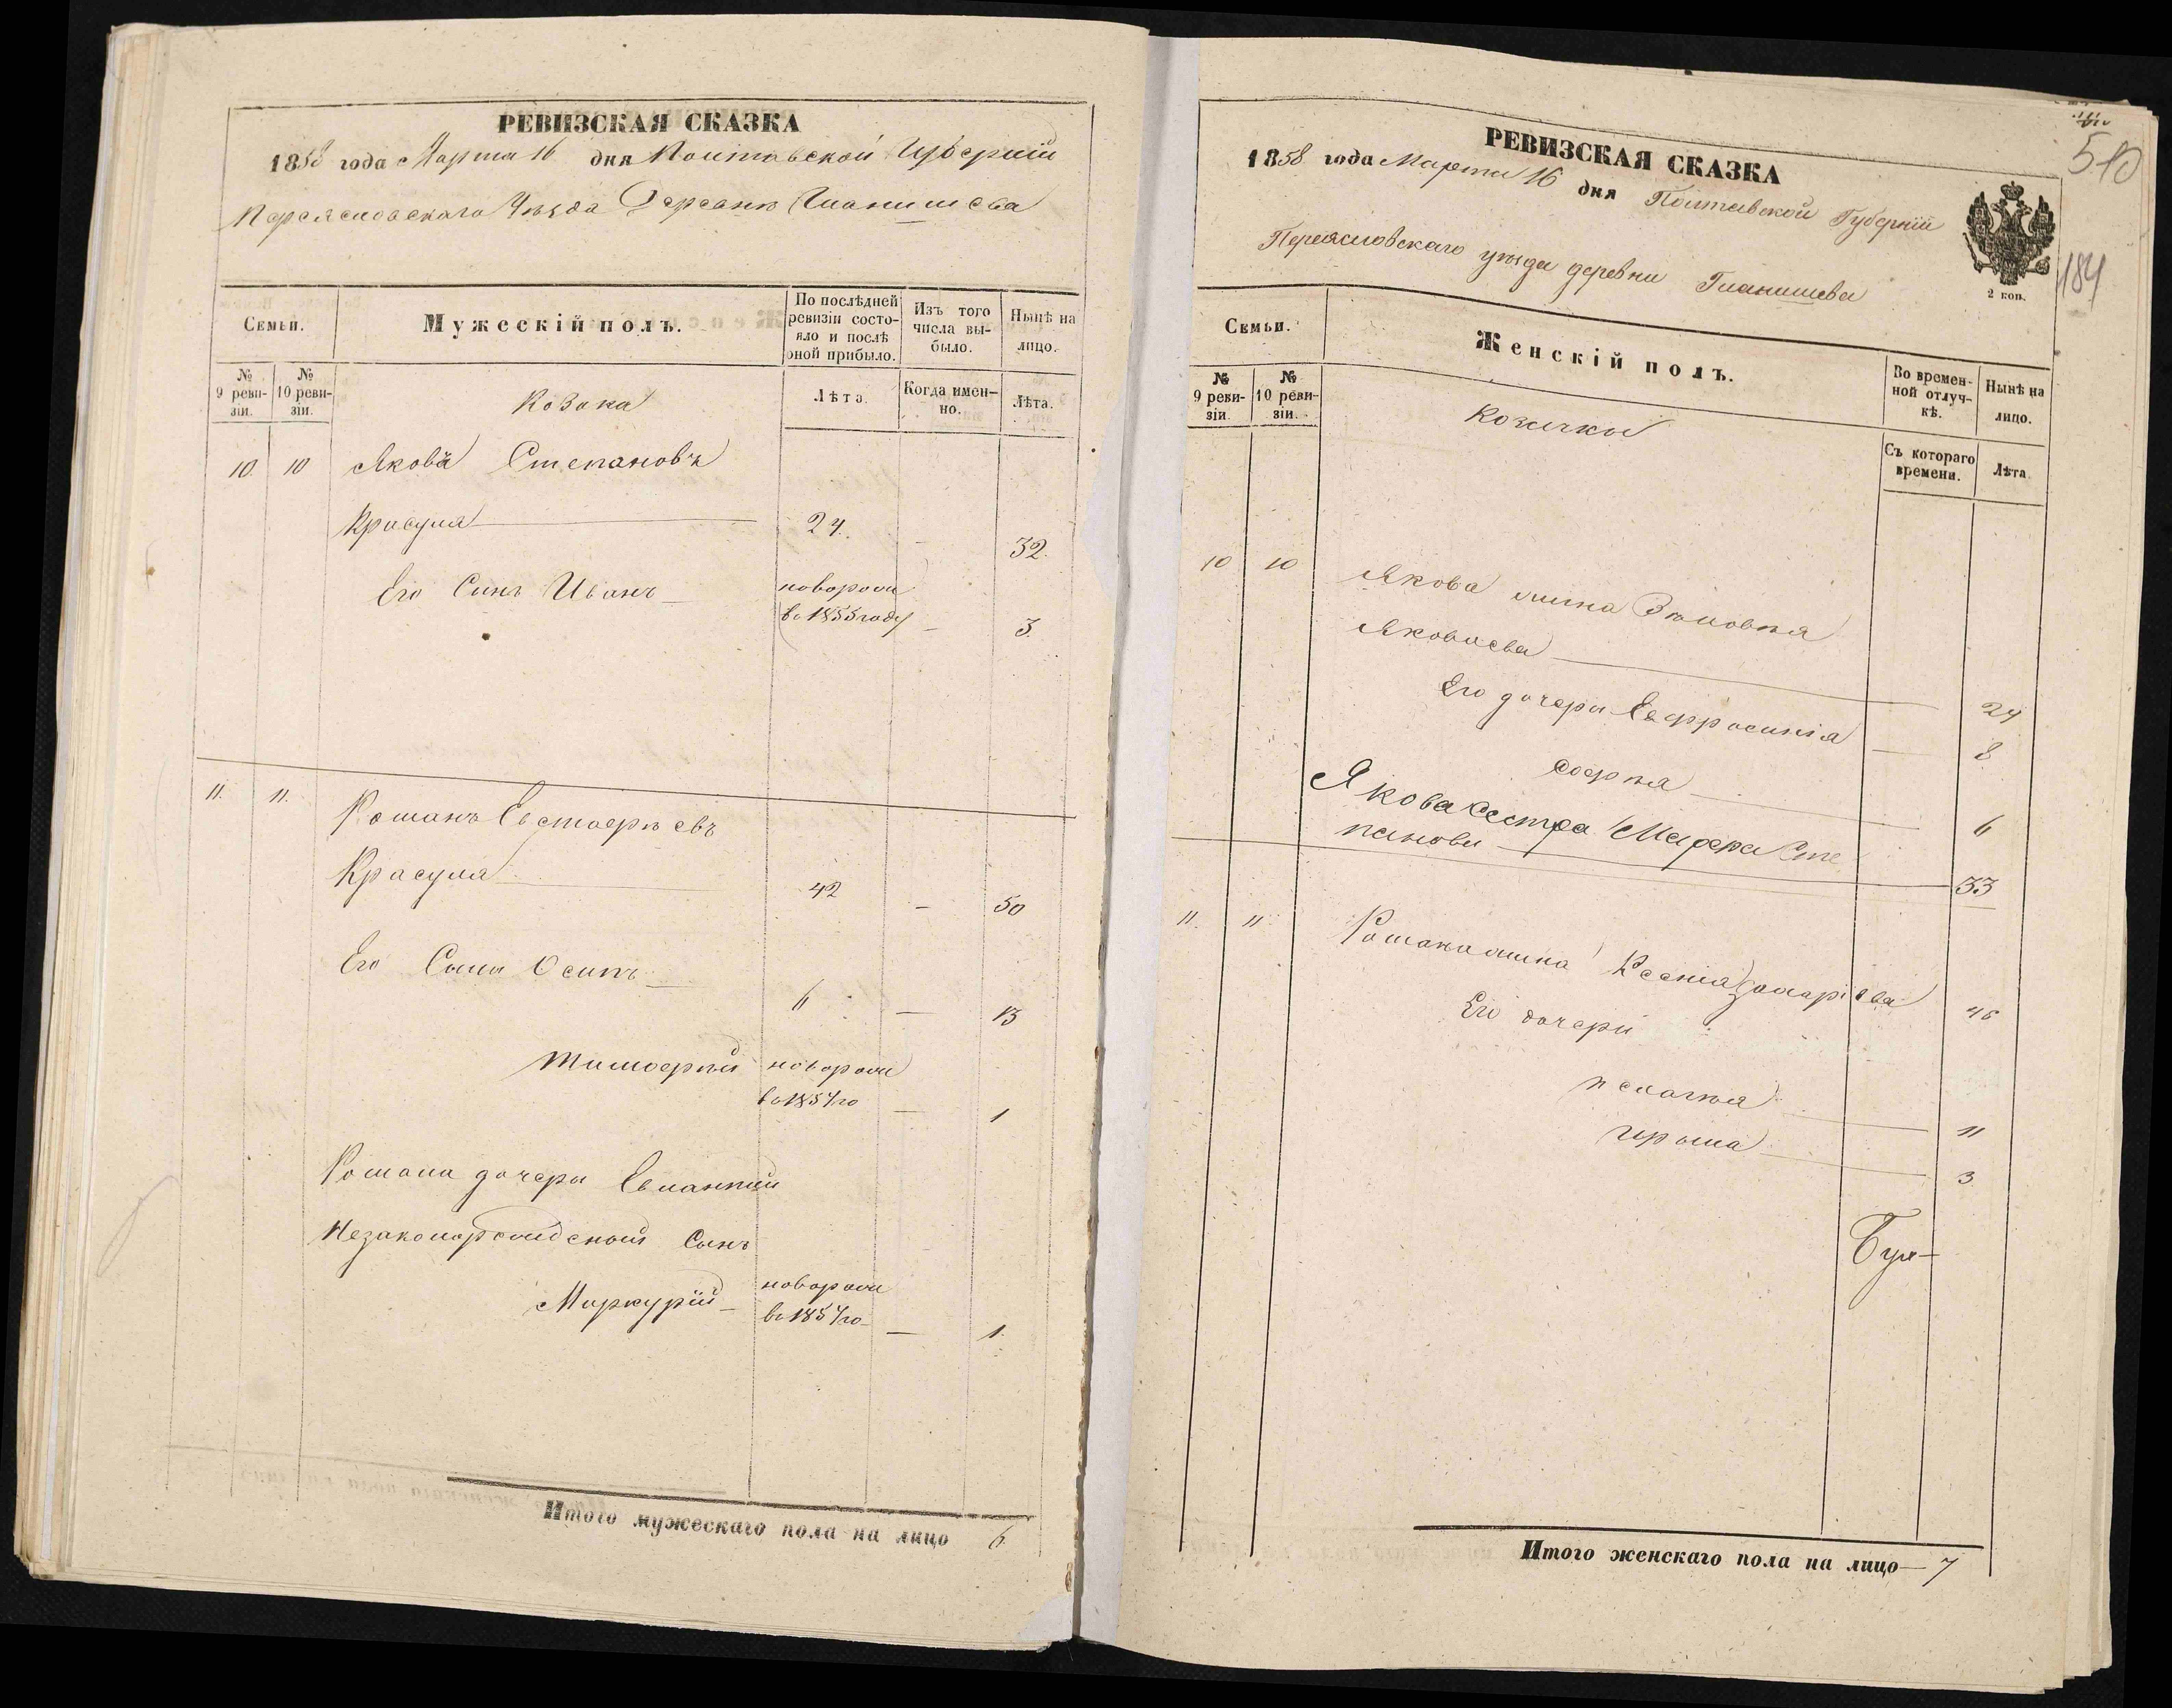 РЕВИЗСКАЯ СКАЗКА
1858 года Марта 16 дня Полтавской Губерніи
Переяславскаго Уѣзда Деревни Гланишева
Семьи.
Мужескій полъ.
По послѣдней ревизіи состояло и послѣ оной прибыло.
Изъ того числа выбыло.
Нынѣ на лицо.
№ 9 ревизіи.
№ 10 ревизіи.
Козака
Лѣта.
Когда именно.
Лѣта.
10 10 Якова Степановъ
Красуля 24. - 32.
Его Синъ Иванъ новорож
въ 1855 году - 3.
11. 11. Романъ Евстафѣевъ
Красуля 42 - 50
Его Сыни Осипъ 6 - 13
Тимофѣй новорож
во 1857 го - 1
Романа дочери Евлампіи
Незаконорожденой Сынъ
Меркурій новорож
во 1857 го - 1.
Итого мужескаго пола на лицо 6
РЕВИЗСКАЯ СКАЗКА
510
1858 года Марта 16 дня Полтавской Губерніи
Переясловскаго уѣзда деревни Гланишева
2 коп.
184
Семьи.
Женскій полъ.
Во временной отлучкѣ.
Нынѣ на лицо.
№ 9 ревизіи.
№ 10 ревизіи.
Козачки
Съ котораго времени.
Лѣта.
10 10 Якова жина Зѣновѣя
Яковлева 24
Его дочери Евфросинія 8
Софѣя 6
Якова сестра Марфа Сте
панова 33
11. 11. Романа жина Ксенія Захаріева 46
Его дочери
пелагѣя 11
ирына 3
Итого женскаго пола на лицо 7